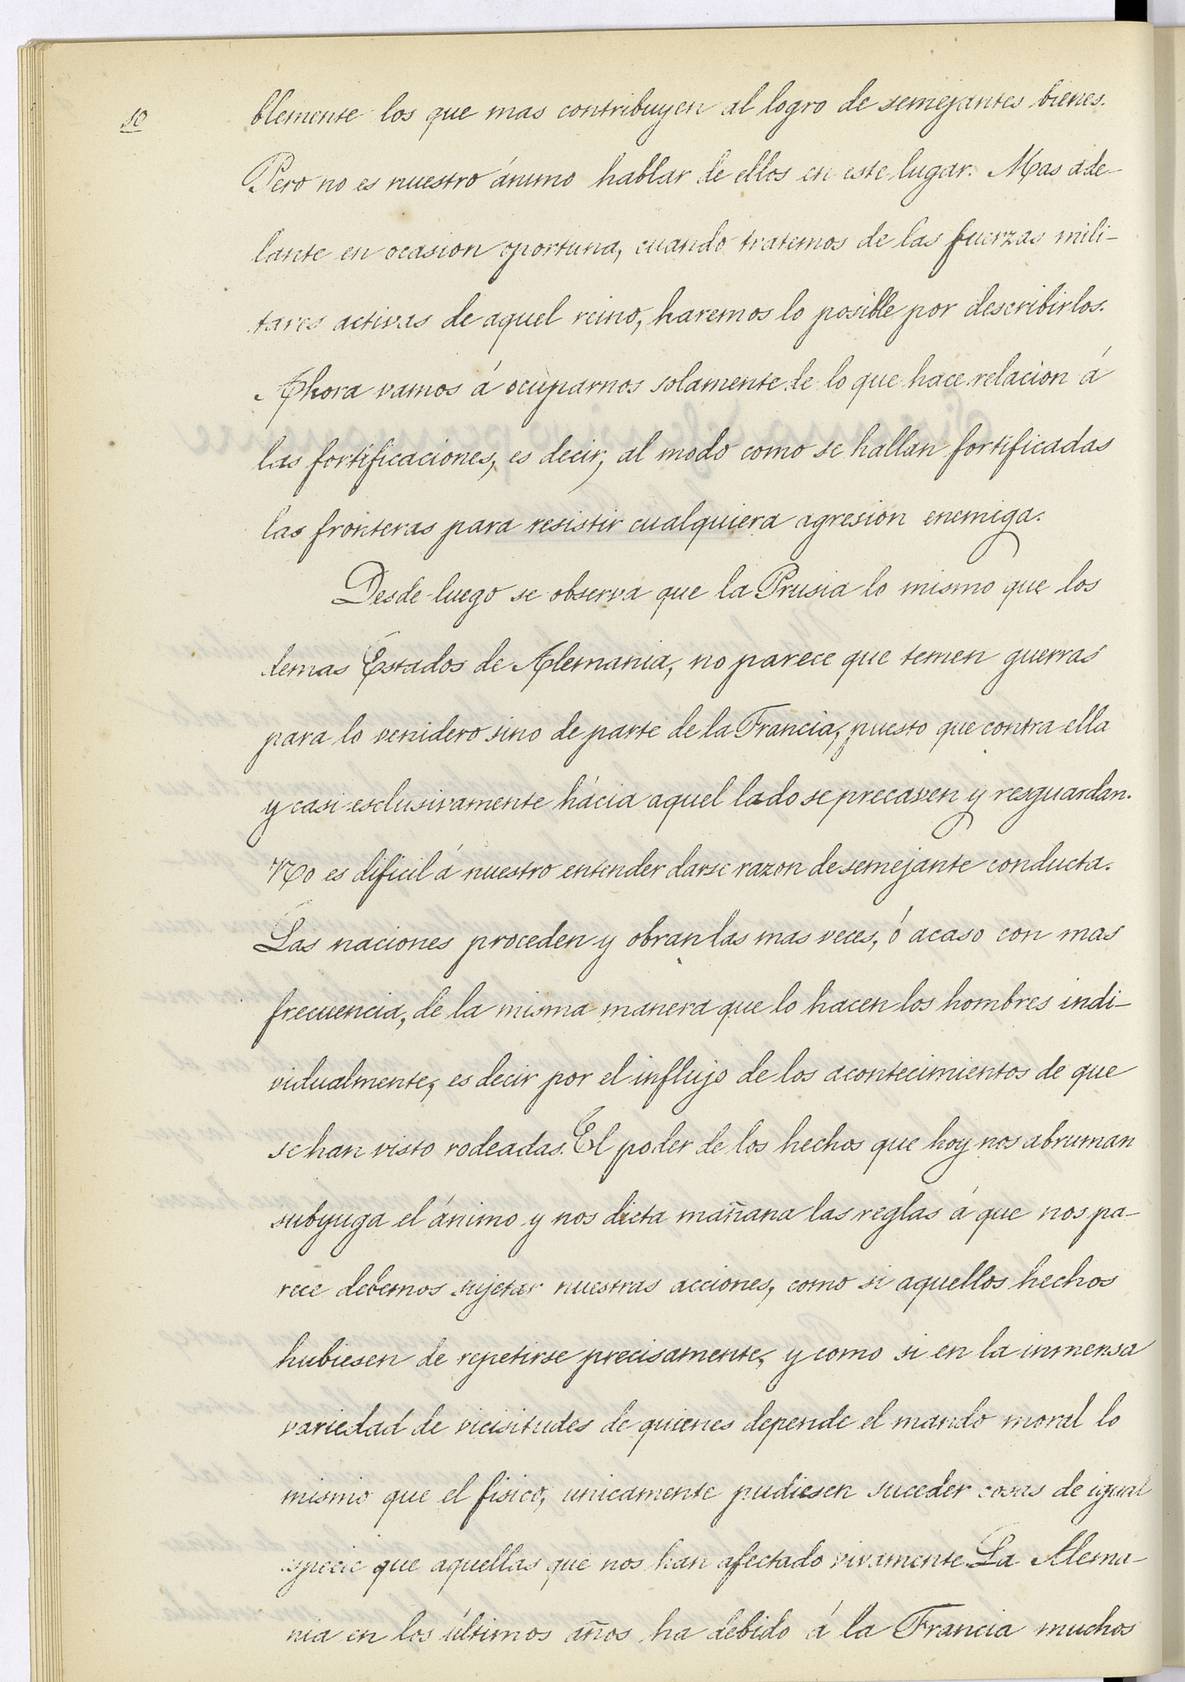 10
blemente los que mas contribuyen al logro de semejantes bienes.
Pero no es nuestro ánimo hablar de ellos en este lugar. Mas ade-
lante en ocasion oportuna, cuando tratemos de las fuerzas mili-
tares activas de aquel reino, haremos lo posible por describirlos.
Ahora vamos á ocuparnos solamente de lo que hace relacion á
las fortificaciones, es decir, al modo como se hallan fortificadas
las fronteras para resistir cualquiera agresion enemiga.
Desde luego se observa que la Prusia lo mismo que los
demas Estados de Alemania, no parece que temen guerras
para lo venidero sino de parte de la Francia, puesto que contra ella
y casi esclusivamente hácia aquel lado se precaven y resguardan.
No es dificil á nuestro entender darse razon de semejante conducta.
Las naciones proceden y obran las mas veces, ó acaso con mas
frecuencia, de la misma manera que lo hacen los hombres indi-
vidualmente, es decir por el influjo de los acontecimientos de que
se han visto rodeadas. El poder de los hechos que hoy nos abruman
subyuga el ánimo y nos dicta mañana las reglas á que nos pa-
rece debemos sujetar nuestras acciones, como si aquellos hechos
hubiesen de repetirse precisamente, y como si en la inmensa
variedad de vicisitudes de quienes depende el mundo moral lo
mismo que el fisico, unicamente pudiesen suceder cosas de igual
especie que aquellas que nos han afectado vivamente. La Alema-
nia en los últimos años ha debido á la Francia muchos